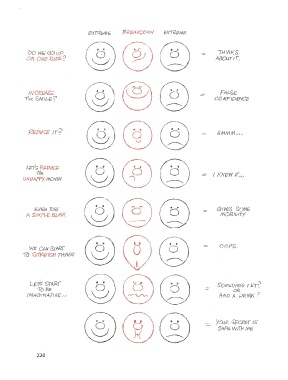 EXTREME BREAKDOWN EXTREME
DO WE GO UP
ON ONE SIDE?
= THINKS
ABOUT IT.
INCREASE
THE SMILE?
= FALSE
CONFIDENCE
REDUCE IT?
= HMMM...
LET'S REDUCE
THE
UNHAPPY MOUTH
= I KNEW IT...
EVEN JUST
A SIMPLE BLINK
= GIVES SOME
MOBILITY
WE CAN START
TO STRETCH THINGS
= OOPS.
LET'S START
TO BE
IMAGINATIVE...
= SOMETHING I ET?
OR
HAD A DRINK?
= YOUR SECRET IS
SAFE WITH ME
220